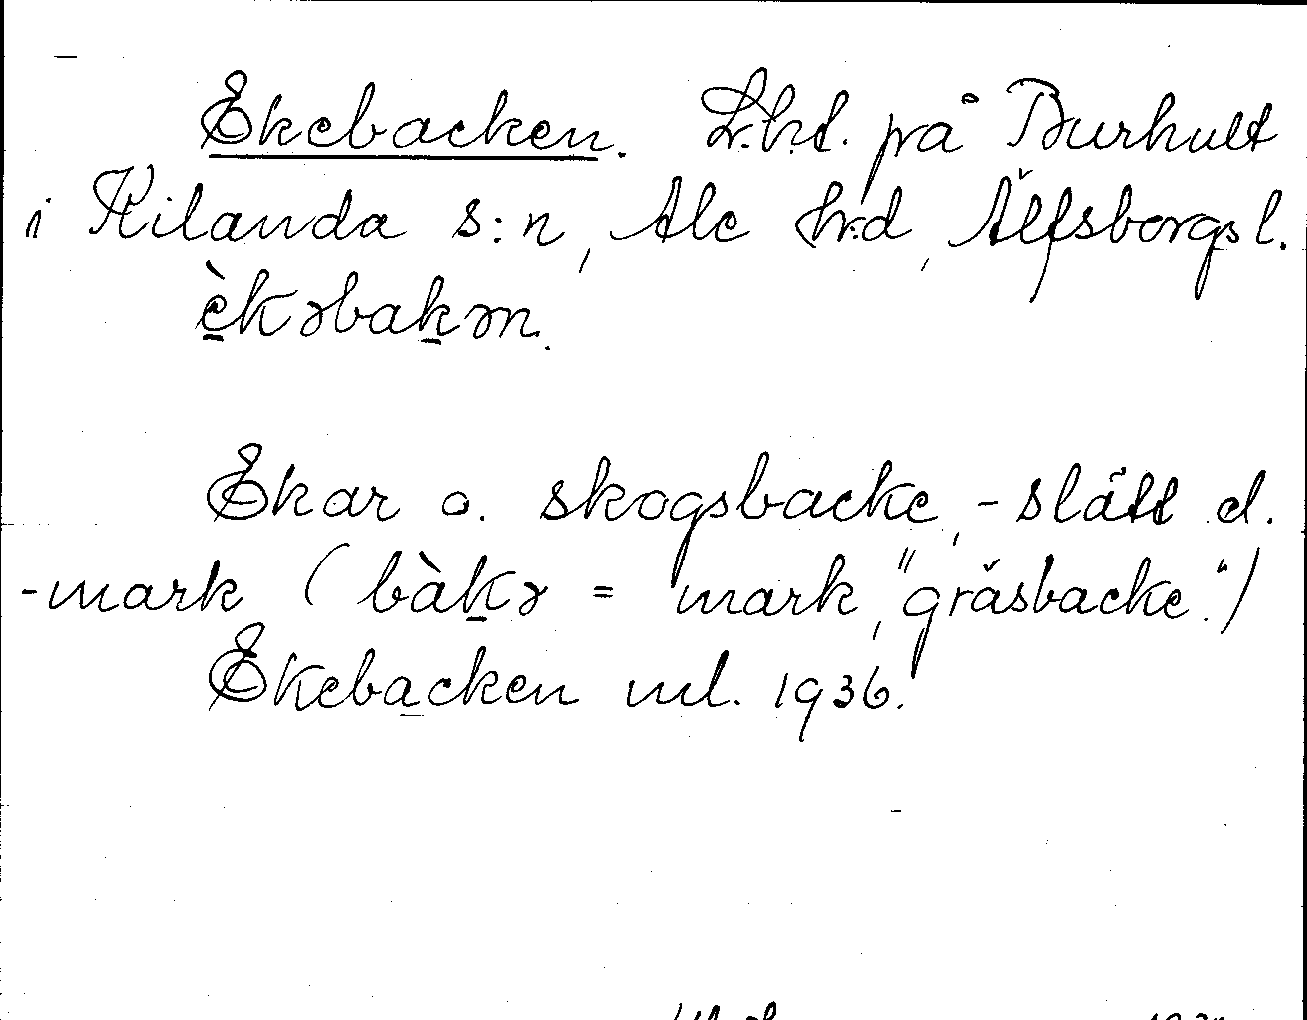 Ekebacken. L.h.t. på Burhult
i Kilanda s:n, Ale hrd, Älfsborgs l.
e̠̊̀kəbak̠ən.
Ekar o. skogsbacke, -slätt el.
-mark (bàk̠ə = mark, "gräsbacke".)
Ekeba̠cken ml. 1936.